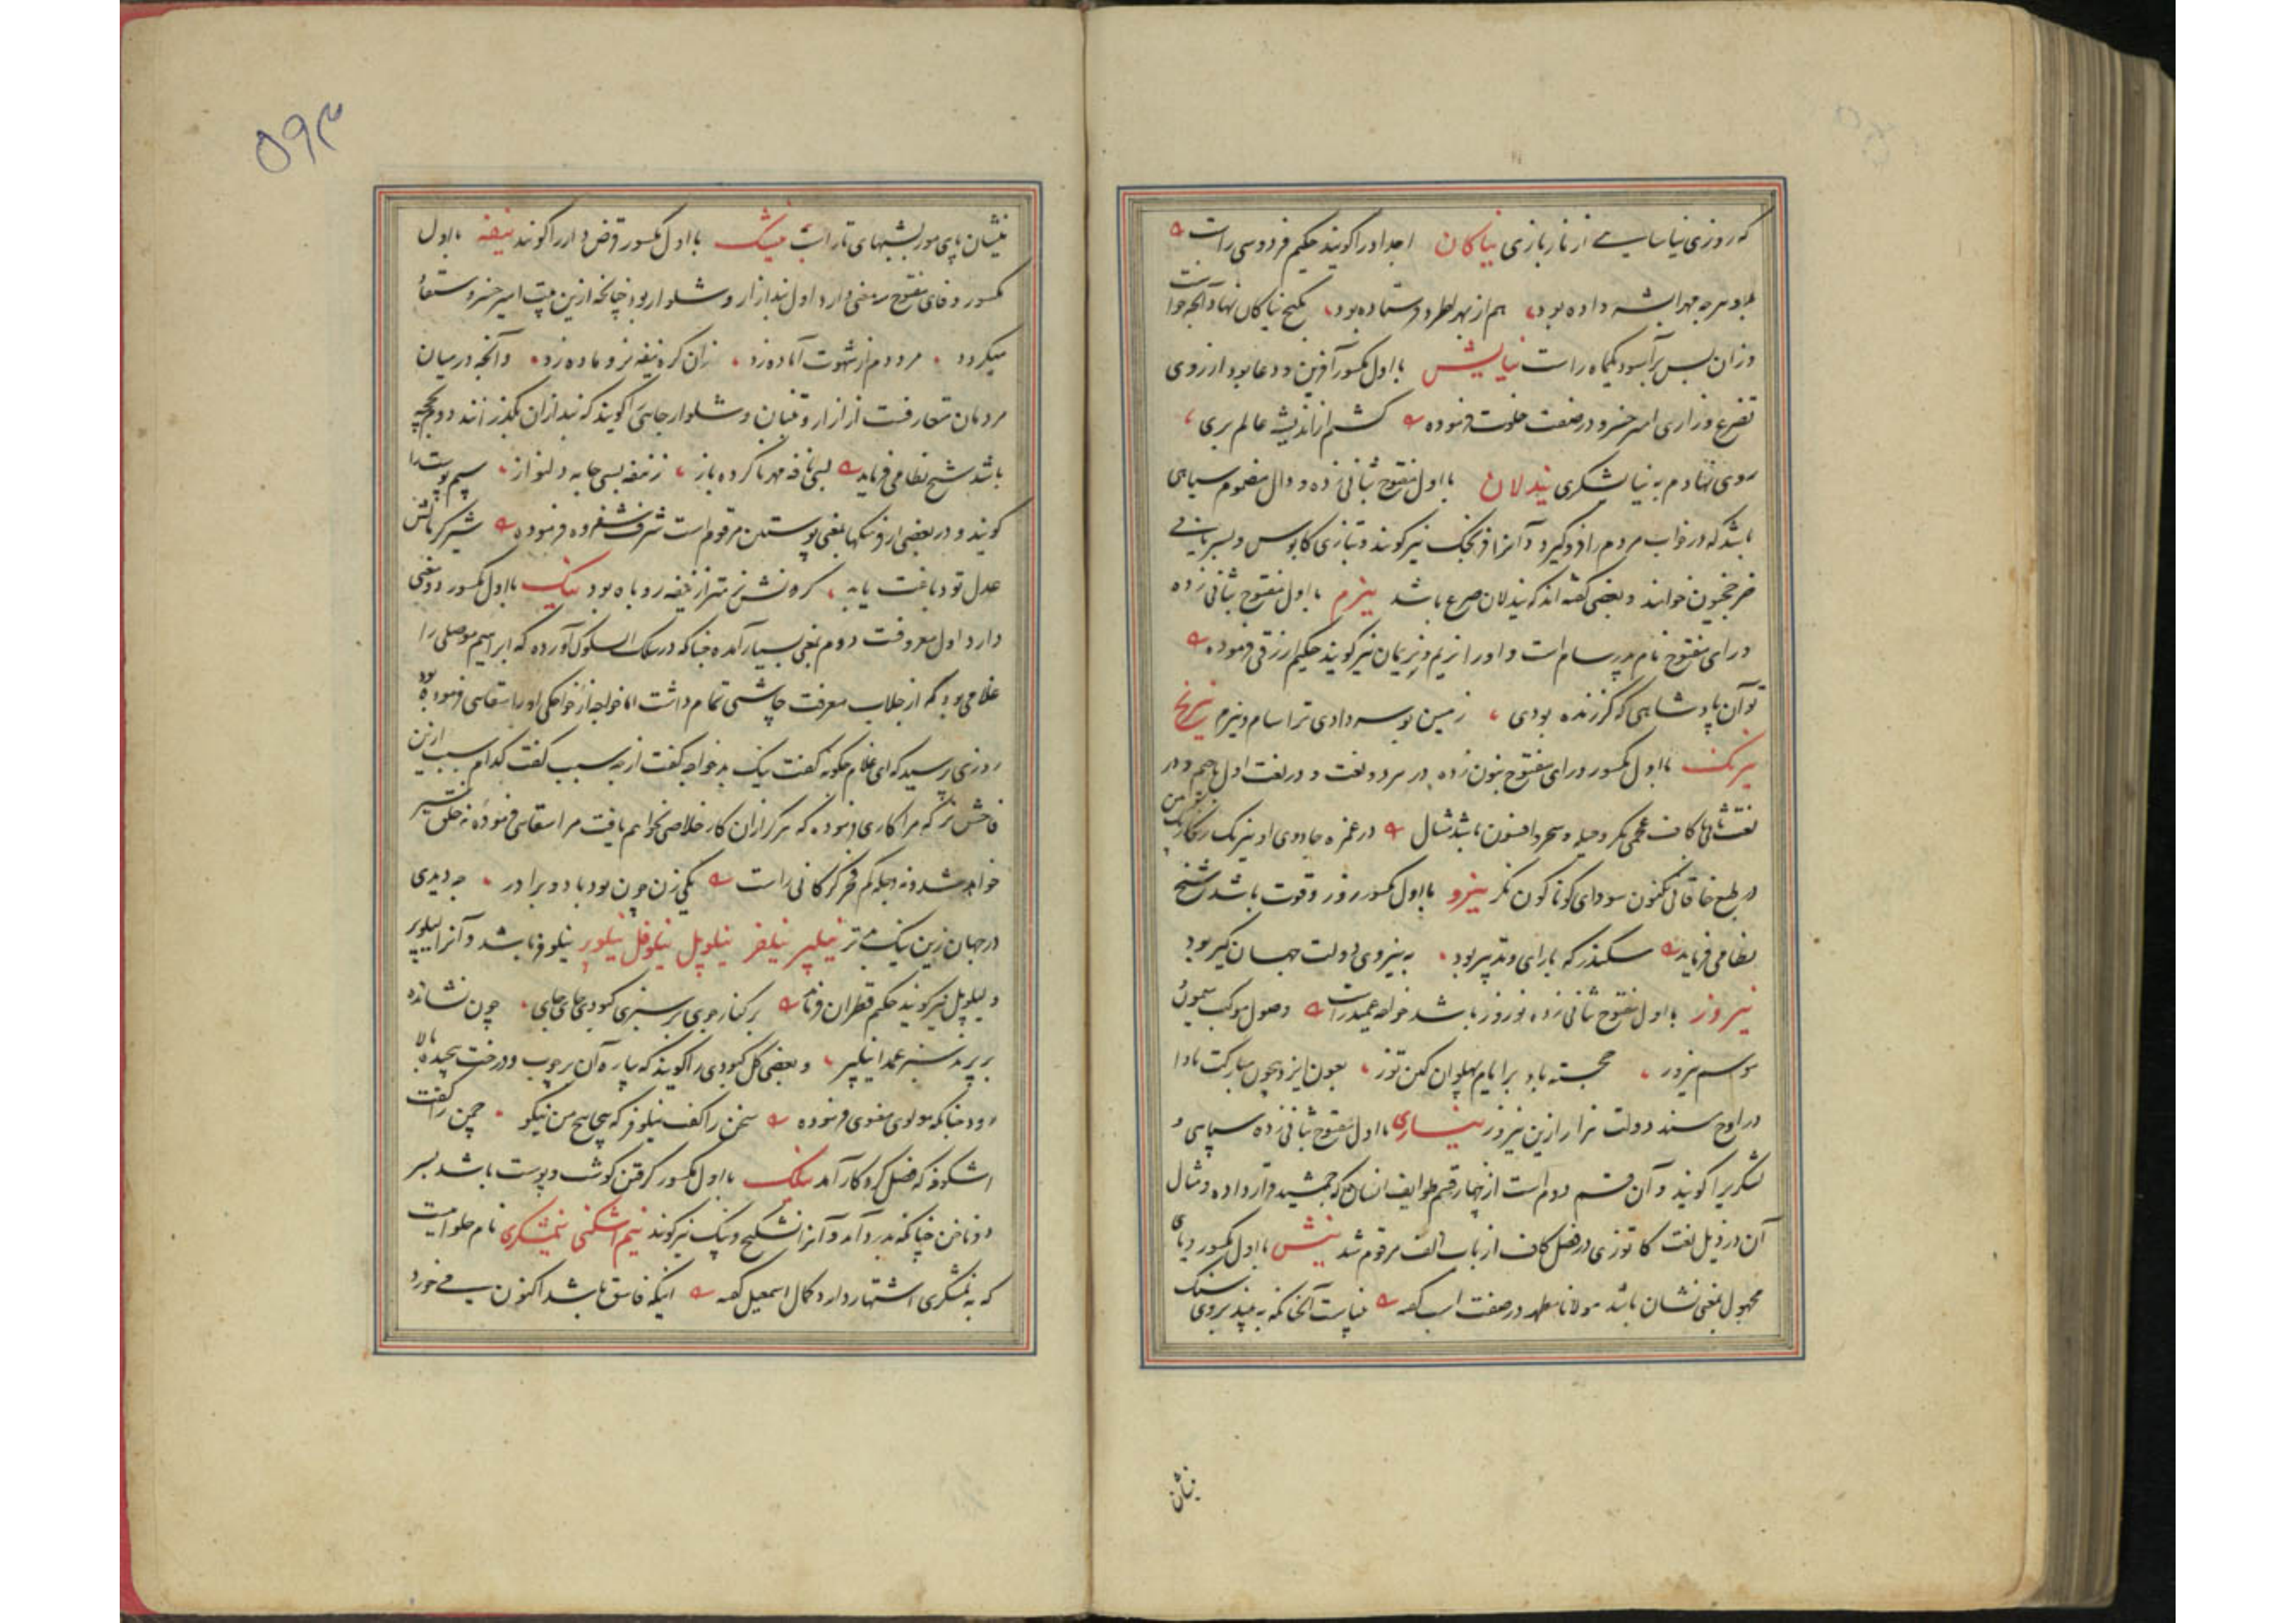 که روزی نیاسایی از ناز بازی نیاکان اجداد را گویند حکیم فردوسی راست
هم از بهر بود بگنج نیاکان
وزان پس برآسود یکماه راست نیایش با اول مکسور آفرین و دعا بود از روی
تضرع و زاری امیر خسرو در صفت خلوت فرموده گشتم از اندیشه عالم بری
روی نهادم به نیایشگری نیدلان با اول مفتوح بثانی زده و دال مضموم سیاهی
باشد که در خواب مردم را فرو گیرد و آنرا فرنجک نیز گویند و بتازی کابوس و بسریانی
خوانند و بعضی گفته اند که نیدلان صرع باشد نیرم با اول مفتوح بثانی زده
و رای مفتوح نام پدر سام است و او را نریم و نریمان نیز گویند حکیم ازرقی فرموده
تو آن پادشاهی که گر زنده بودی زمین بوسه دادی ترا سام و نیرم نیرنج
نیرنگ با اول مکسور و رای مفتوح بنون زده در هر دو لغت و در لغت اول جیم و در
لغت ثانی کاف عجمی مکر و حیله و سحر و افسون باشد مثال در غمزه جادوی او نیرنگ رنگارنگ
در طبع خاقانی کنون سودای گوناگون نگر نیرو با اول مکسور زور و قوت باشد شیخ
نظامی فرماید سکندر که با رای و تدبیر بود به نیروی دولت جهان گیر بود
نیروز با اول مفتوح بثانی زده نوروز باشد خواجه عمید راست وصول موکب میمون
موسم نیروز خجسته باد بر ایام پهلوان کین توز بعون ایزد بیچون مبارکت بادا
در اوج مسند دولت هزار ازین نیروز نیساری با اول مفتوح بثانی زده سپاهی و
لشکری را گویند و آن قسم دوم است از چهار قسم طوایف انسان که جمشید قرار داده و مثال
آن در ذیل لغت کاتوزی در فصل کاف از باب الف مرقوم شد نیش با اول مکسور و یای
مجهول بمعنی نشان باشد مولانا مطهر در صفت اسب گفته
نیشان
۵۹۳
نیشان پای مور بشبهای تار با اول مکسور قرض دار را گویند نیفه با اول
مکسور و فای مفتوح معنی دارد اول بند ازار و شلوار بود چنانچه ازین بیت امیر خسرو مستفاد
میگردد مرد دم از شهوت آماده زد زان گره نیفه نر و ماده زد و آنچه در میان
مردمان متعارفست از ازار و تنبان و شلوار جایی را گویند که بند ازان بگذرانند دوم
باشد شیخ نظامی فرماید بسی نافه مهر ناکرده باز ز نیفه بسی جامه دلنواز سیم پوست را
گویند و در بعضی از فرهنگها بمعنی پوستین مرقوم است شرف شفروه فرموده شیر گر مالش
عدل تو دباغت یابد گردنش نرمتر از نیفه روباه بود نیک با اول مکسور دو معنی
دارد اول معروفست دوم بمعنی بسیار آمده چنانکه در سلک السلوک آورده که ابراهیم موصلی را
غلامی بود که از جلاب معرفت چاشنی تمام داشت اما خواجه از خواجگی او را سقایی فرموده بود
روزی پرسید که ای غلام چگونه گفت نیک بد خواجه گفت از چه سبب گفت کدام سبب ازین
فاحش تر که مرا کاری فرموده که هرگز ازان کار خلاصی نخواهم یافت مرا سقایی فرموده نه خلق سیر
خواهد شد و نه دجله کم فخر گرگانی راست یکی زن چون بود با دو برادر چه دیدی
در جهان زین نیک می تر نیلپر نیلفر نیلوپل نیلوفل نیلوپر نیلوفر باشد و آنرا لیلوپر
و لیلوپل نیز گویند حکیم قطران فرماید بر کنار جوی بر سبزی کبودی جای جای چون نشانده
بر پرند سبز عمدا نیلپر و بعضی گل کبودی را گویند که پاره آن بر چوب و درخت پیچیده بالا
رود چنانکه مولوی معنوی فرموده سخن را گفت نیلوفر که پیچاپیچ من نیکو چمن را گفت
اشکوفه که فضل کردگار آمد نیلک با اول مکسور گرفتن گوشت و پوست باشد بسر
دو ناخن چنانکه بدرد آید و آنرا نشگنج و نیک نیز گویند نیم اشکنی نیمشکری نام حلواییست
که به نمشکری اشتهار دارد کمال اسمعیل گفته اینکه فاسق باشد اکنون سیم خورد